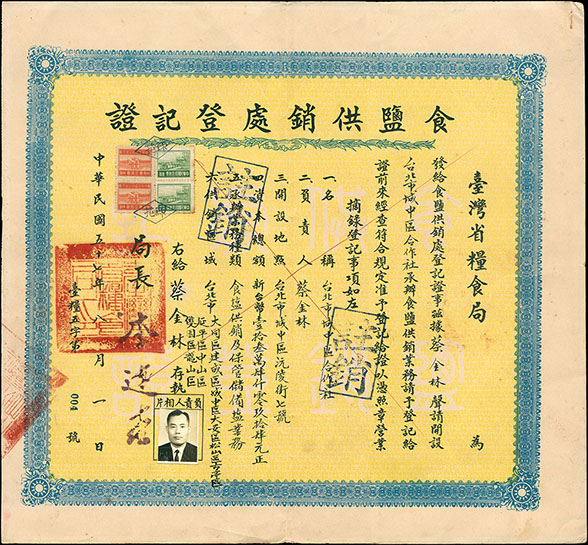 食鹽供銷處登記證
臺灣省糧食局 為
發給食鹽供銷處登記證事茲據蔡金林聲請開設
台北市城中區合作社承辦食鹽供銷業務請予登記給
證前來經查符合規定准予登記給證以憑照章營業
摘錄登記事項如左
一名 稱 台北市城中區合作社
二負責人 蔡金林
三開設地點 台北市城中區沅陵街七號
四資本總額 新台幣壹拾叁萬肆仟零玖拾肆元正
五承辦業務種類 食鹽供銷及保管儲備鹽業務
六供銷區域 台北市
大同區建成區城中區大安區松山區古亭區
延平區中山區
雙園區龍山區
右給 蔡金林 存執
局長 李連春
中華民國五十七年八月一日
臺糧五字第 004 號
負責人相片
註銷
註銷